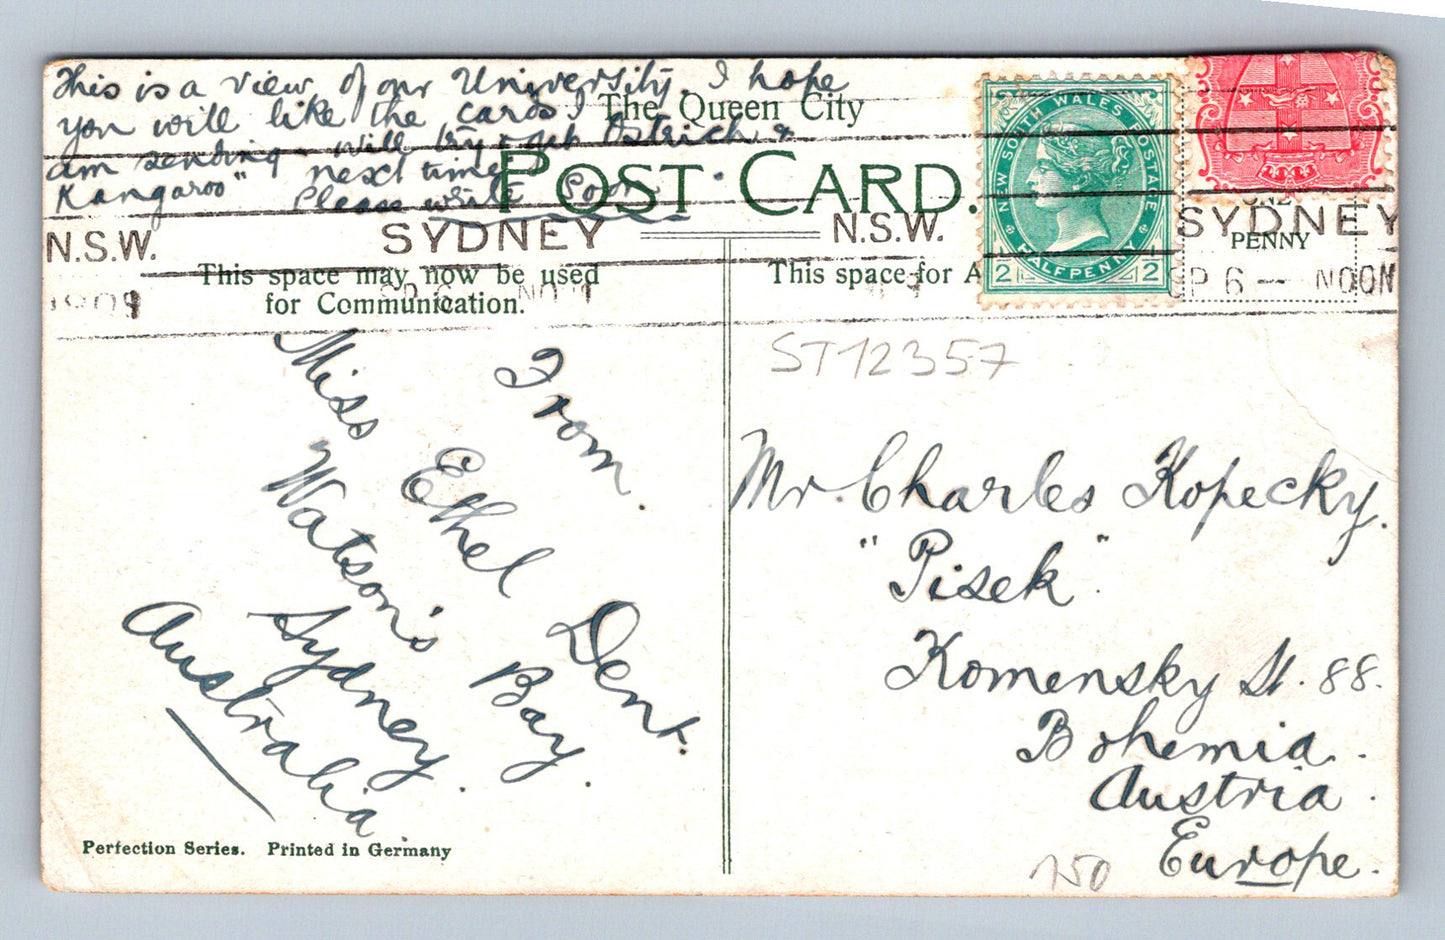 This is a view of our University. I hope
you will like the cards I
am sending - will try & get Ostrich &
Kangaroo" next time
Please write soon
The Queen City
POST CARD.
N.S.W. SYDNEY N.S.W. SYDNEY
SP 6 — NOON
NEW SOUTH WALES POSTAGE
HALFPENNY
1/2 1/2
ONE
PENNY
This space may now be used
for Communication.
This space for A
From.
Miss Ethel Dent.
Watson's Bay.
Sydney.
Australia
ST12357
Mr. Charles Kopecky.
"Pisek"
Komensky St. 88.
Bohemia.
Austria.
Europe.
150
Perfection Series. Printed in Germany